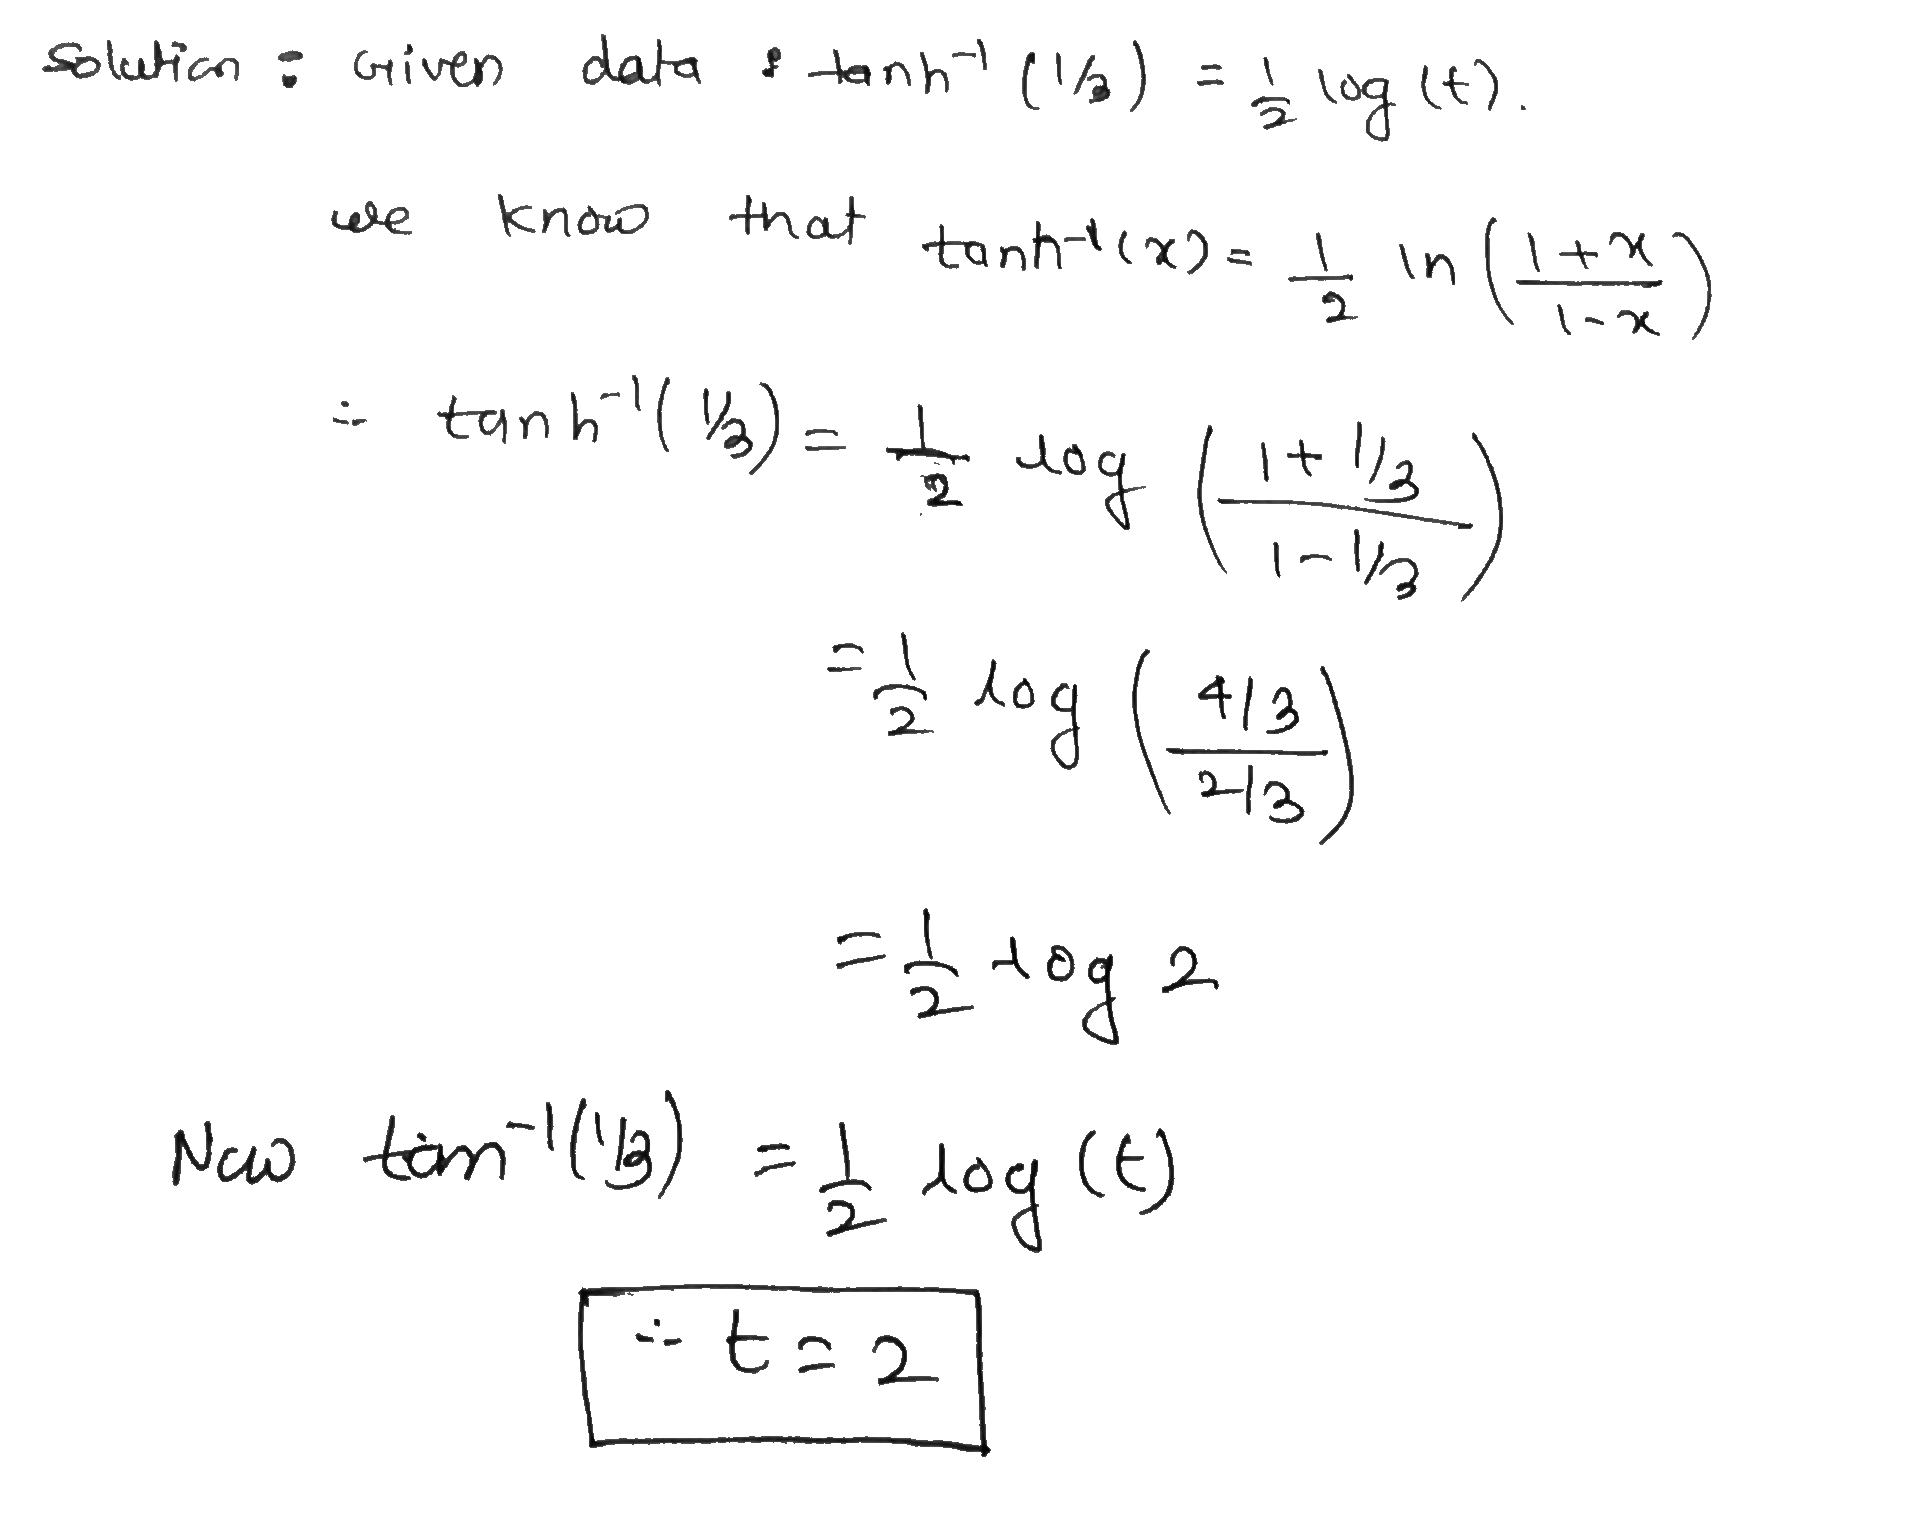 Solution : Given data : tanh⁻¹ (1/3) = 1/2 log (t).
we know that tanh⁻¹(x) = 1/2 ln ( (1+x)/(1-x) )
∴ tanh⁻¹( 1/3 ) = 1/2 log ( (1 + 1/3)/(1 - 1/3) )
= 1/2 log ( (4/3)/(2/3) )
= 1/2 log 2
Now tan⁻¹(1/3) = 1/2 log (t)
∴ t = 2